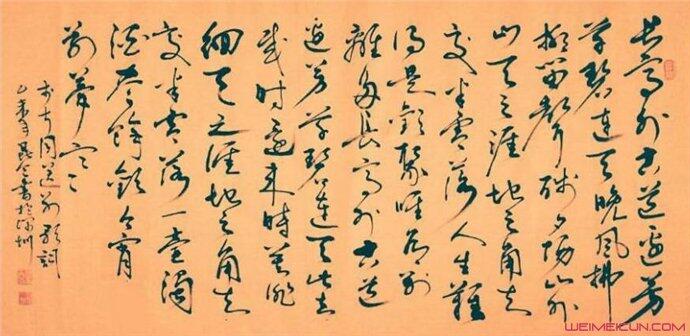 长亭外古道边芳
草碧连天晚风拂
柳笛声残夕阳山外
山天之涯地之角知
交半零落人生难
得是欢聚唯有别
离多长亭外古道
边芳草碧连天此去
几时还来时莫徘
徊天之涯地之角知
交半零落一壶浊
酒尽余欢今宵
别梦寒
李叔同送别歌词
乙未年书于深圳
WEIMEICUN.COM